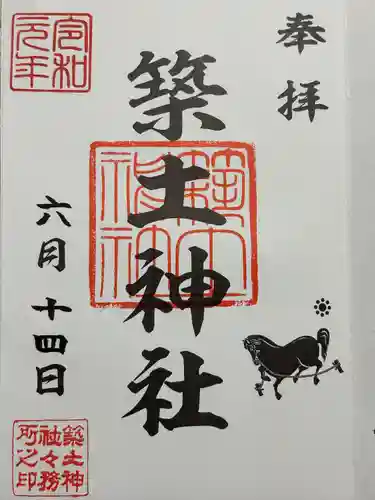 奉拝
築土神社
令和元年
六月十四日
築土神
社々務
所之印